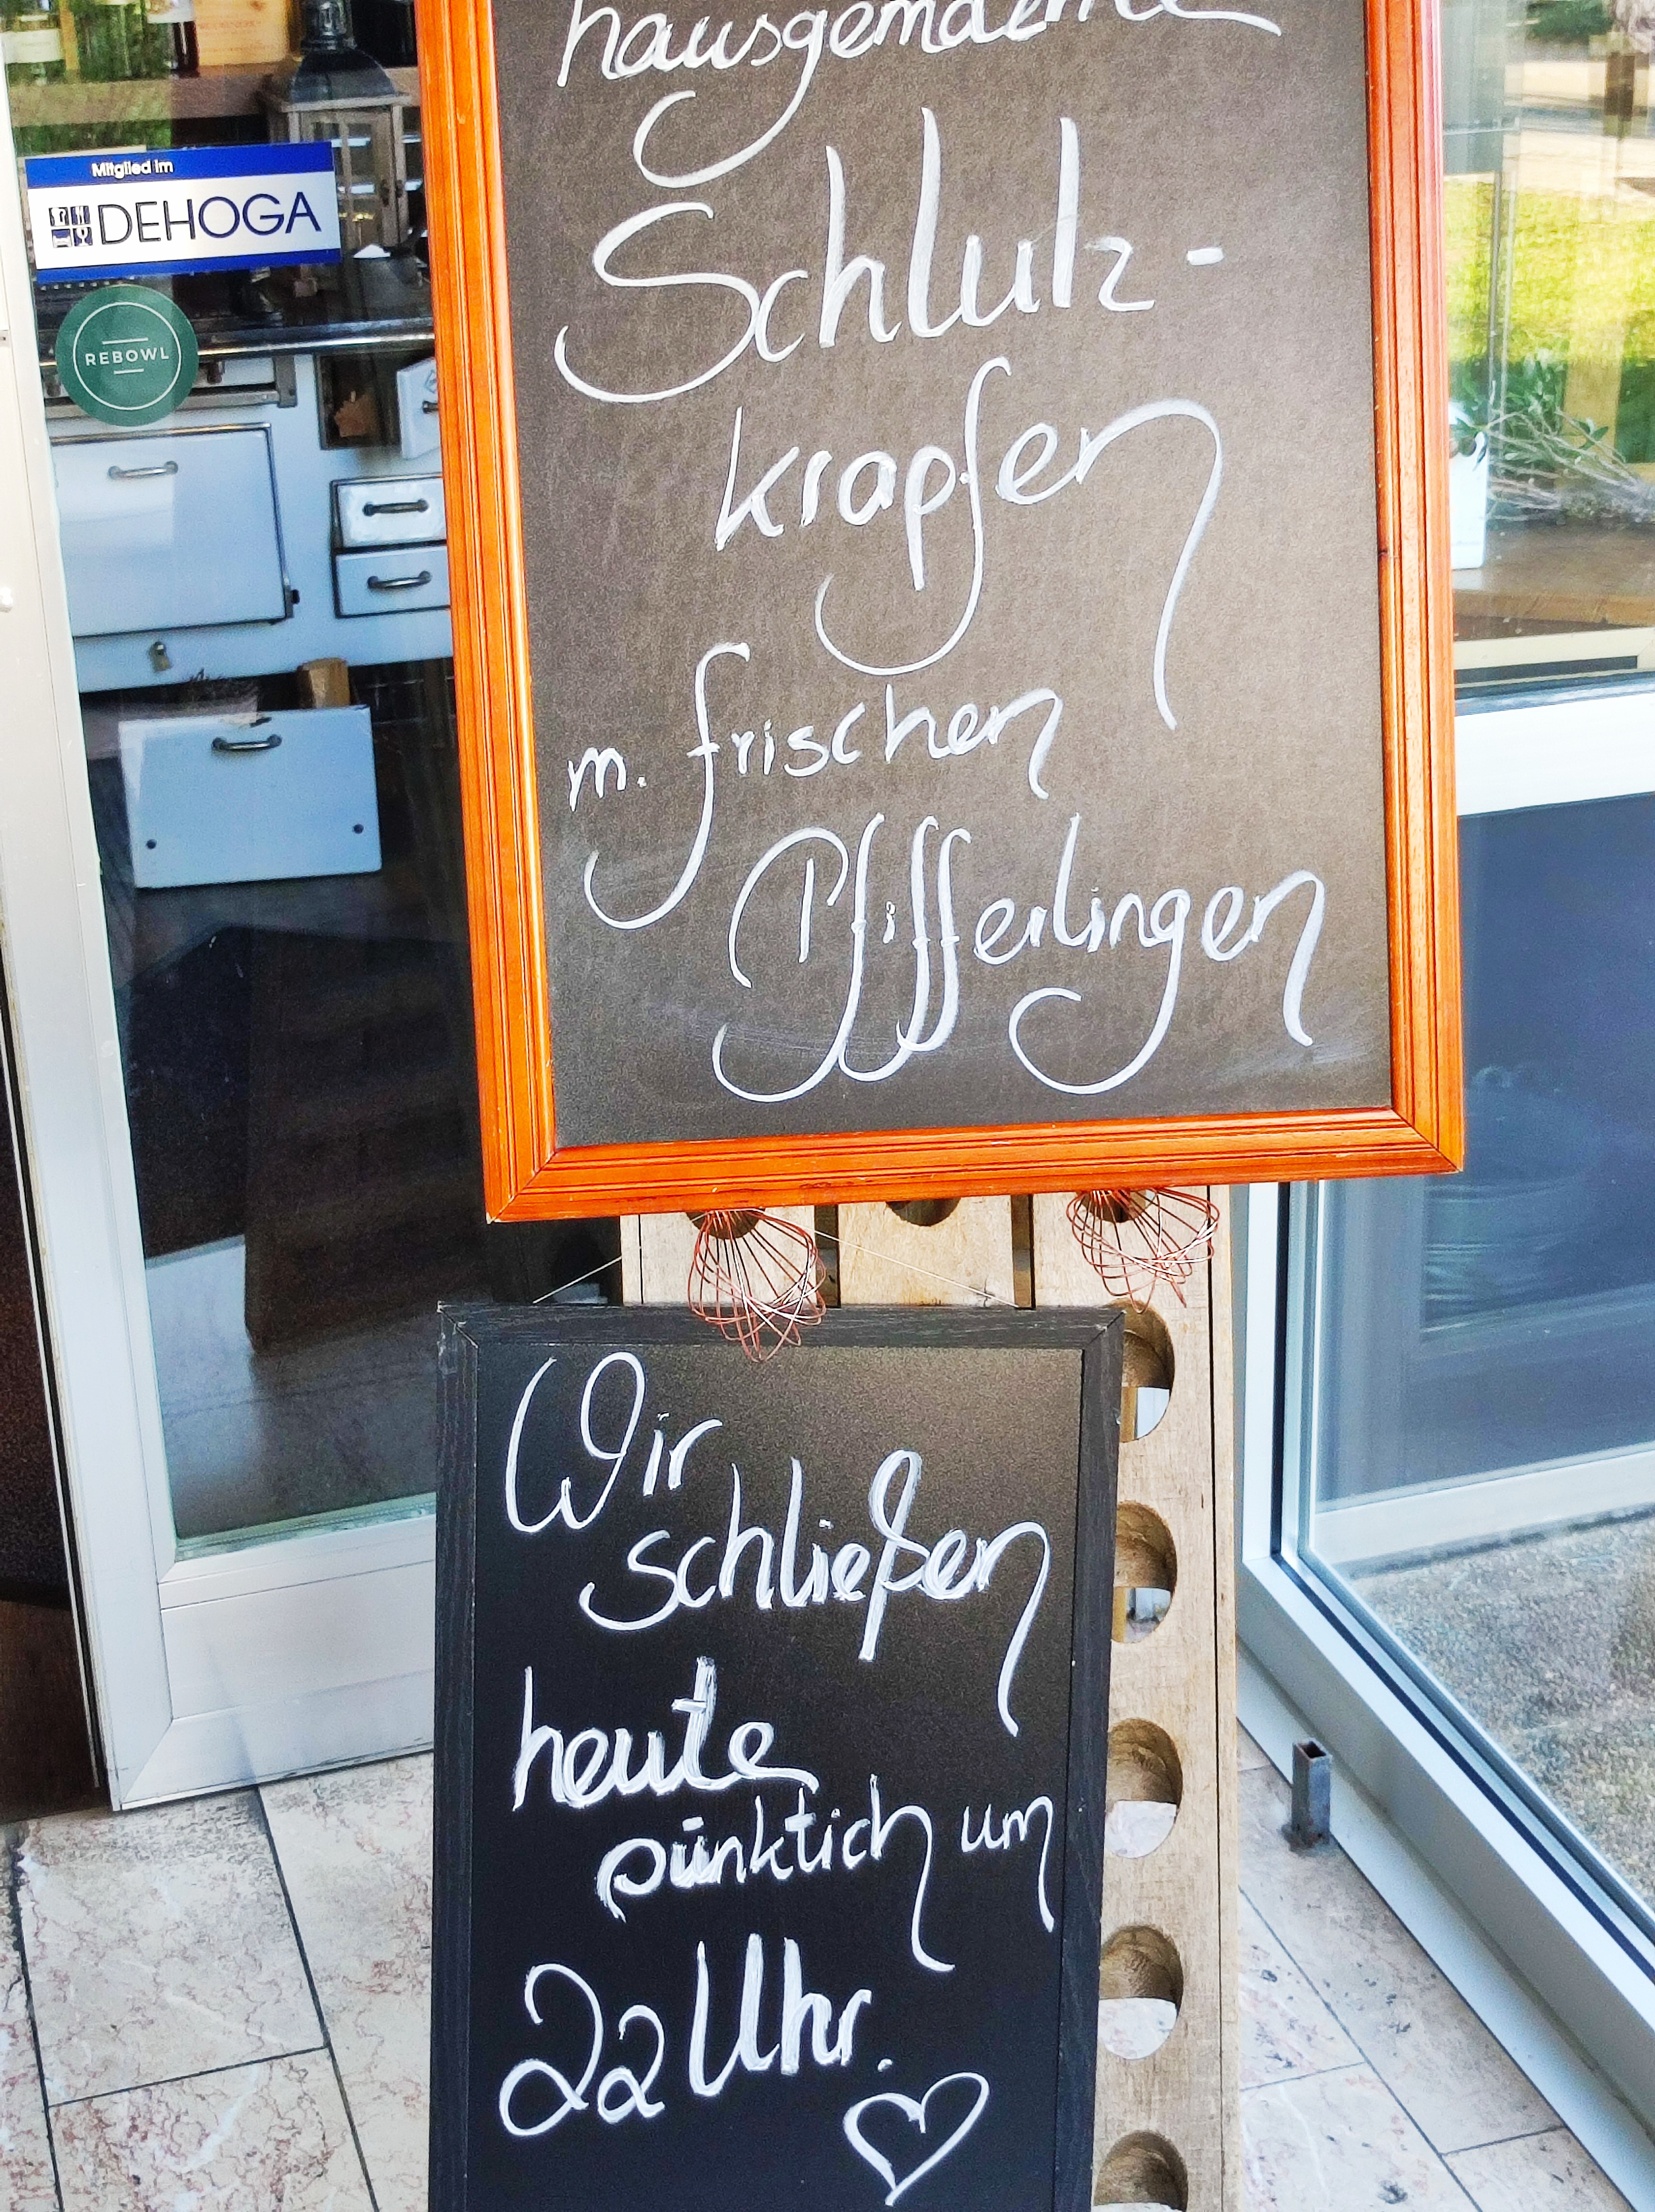 hausgemachte
Schlutz-
krapfen
m. frischen
Pfifferlingen
Wir
schließen
heute
pünktlich um
22 Uhr.
Mitglied im
DEHOGA
REBOWL